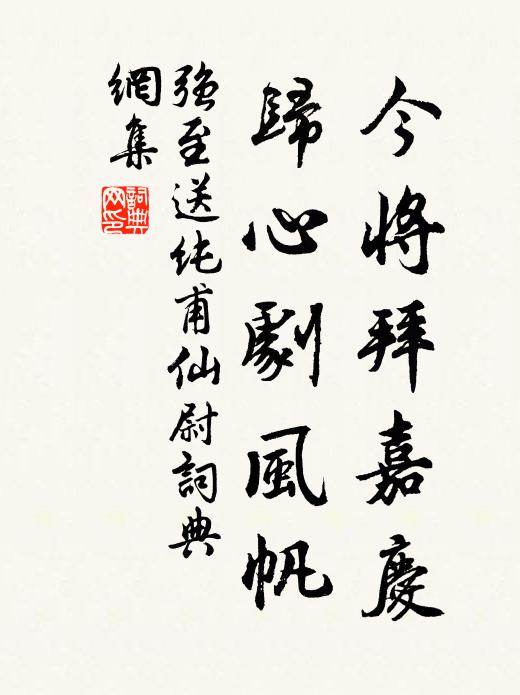 今將拜嘉慶
歸心劇風帆
強至送純甫仙尉詞典
網集
詞典網印